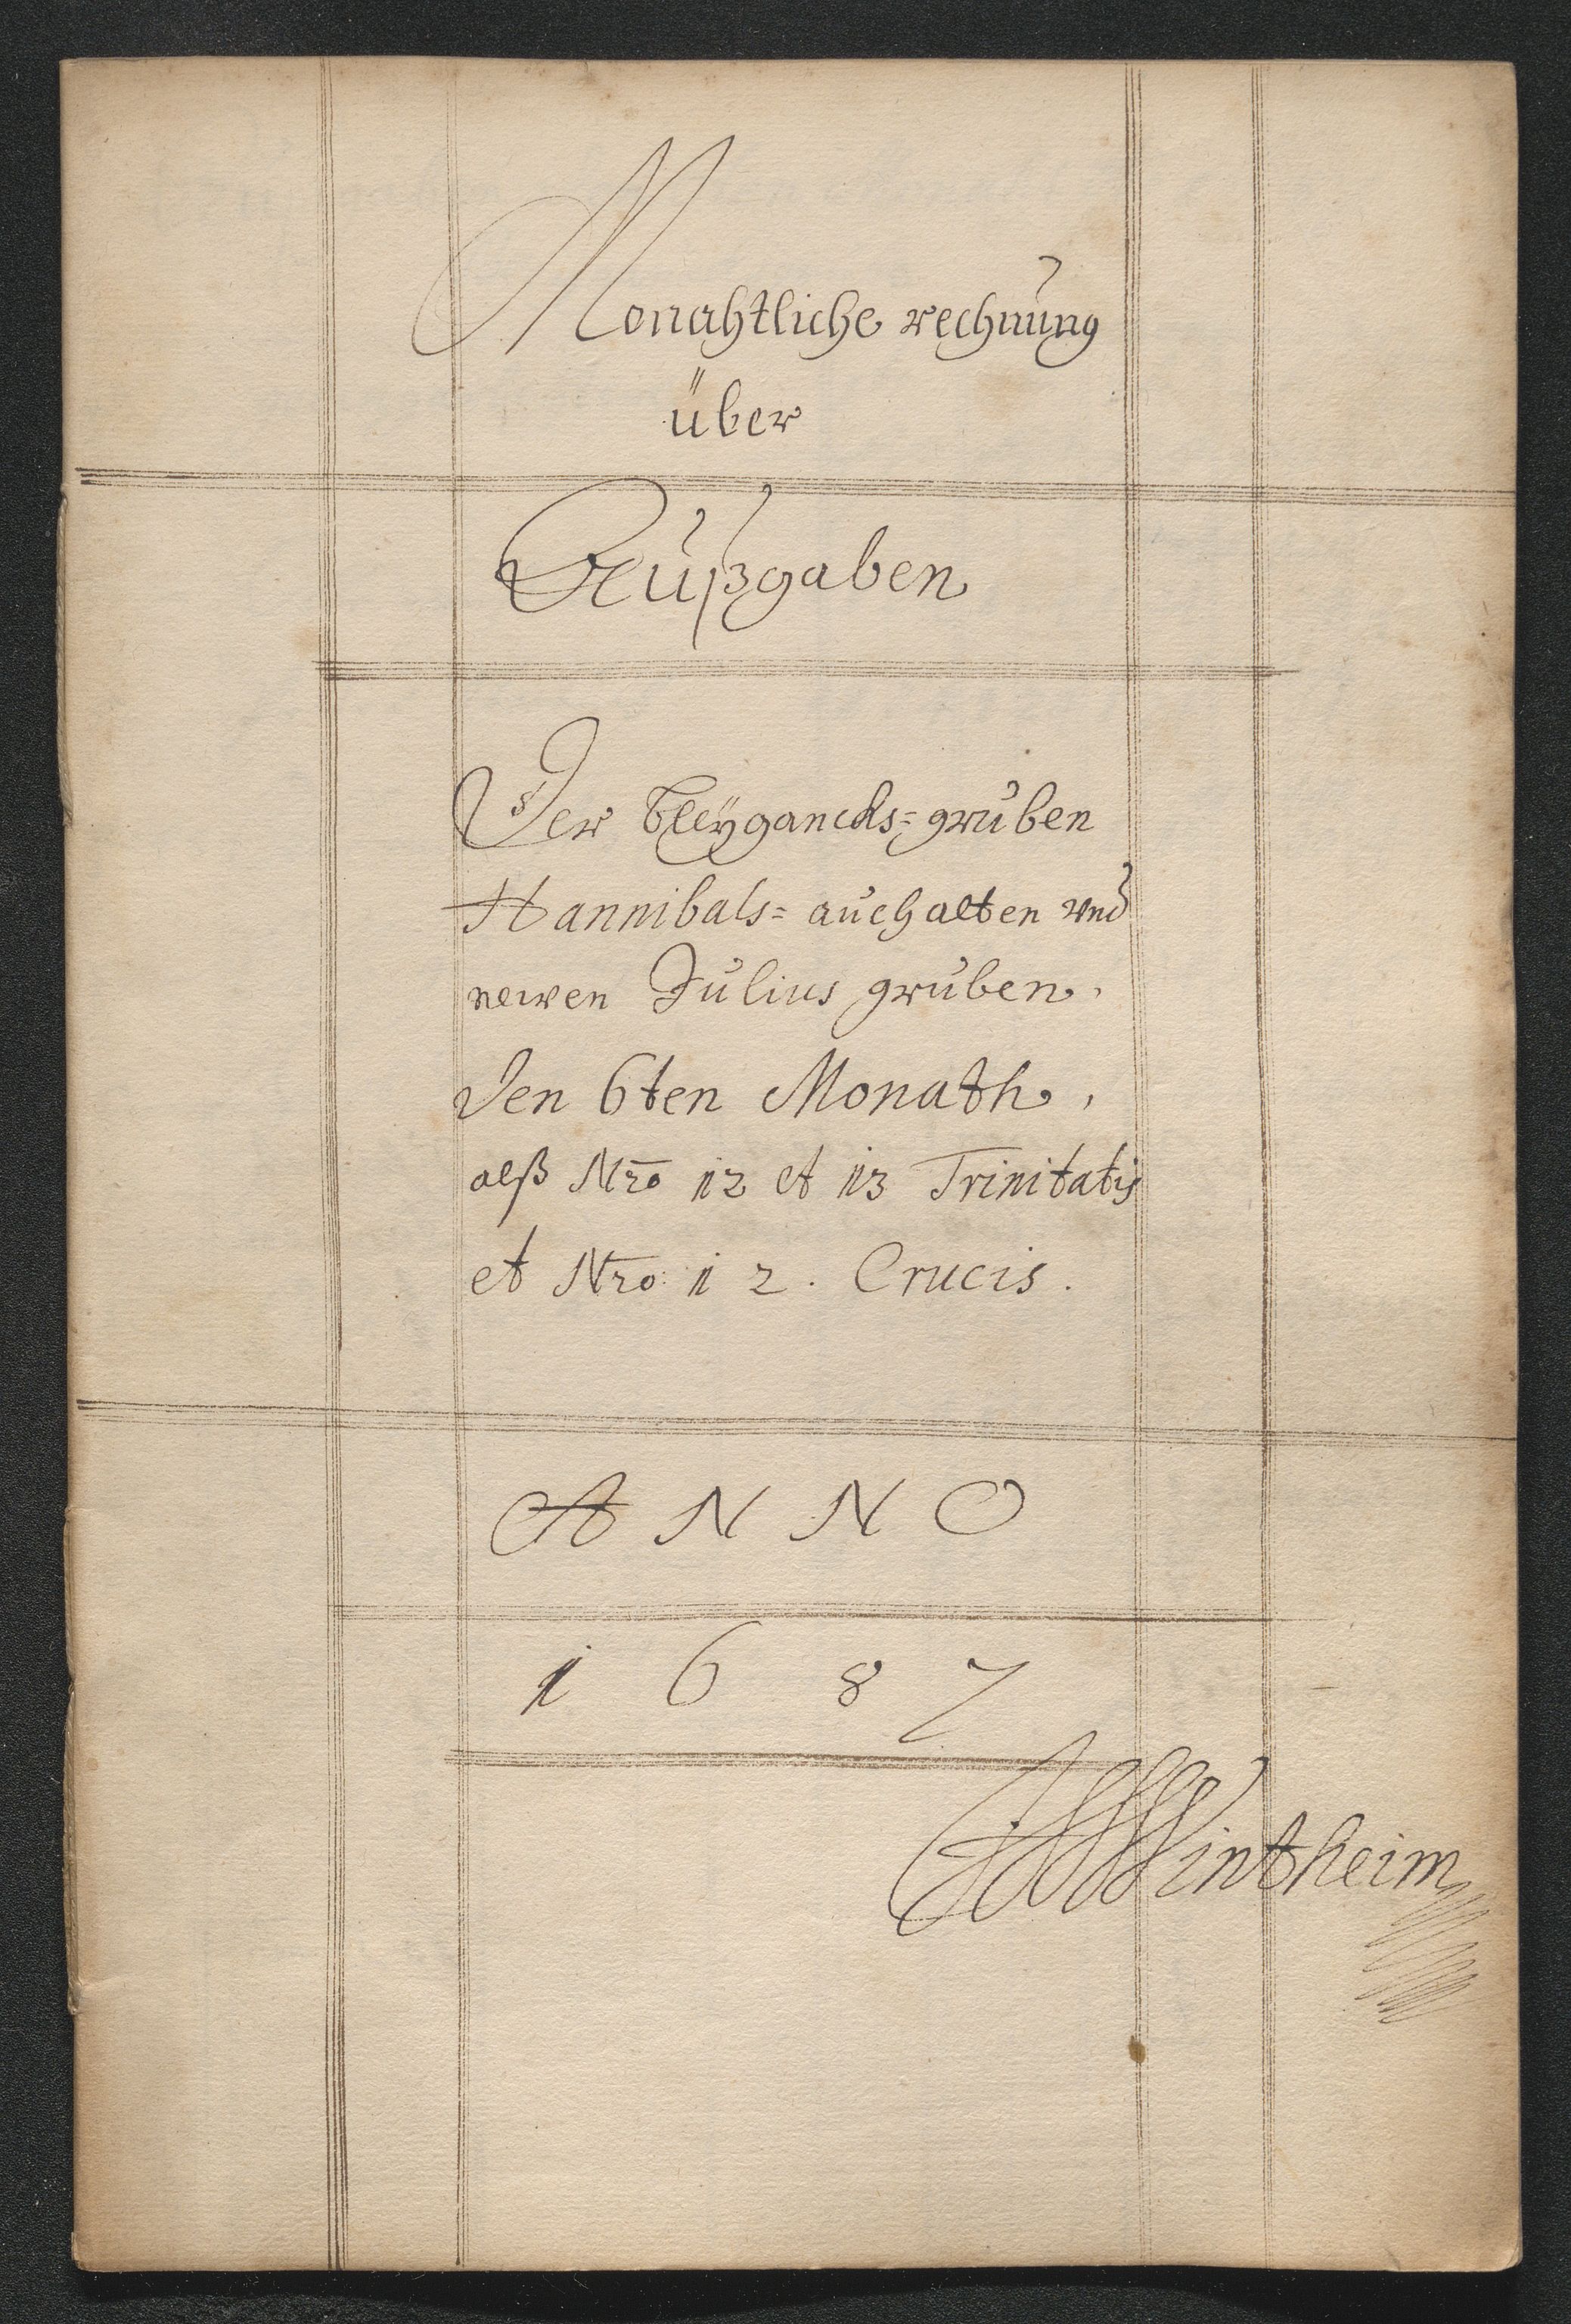 Monahtliche rechnung
über
Außgaben
Der Bleÿgancks= gruben
Hannibals= auch alten vnd
newen Julius gruben.
den 6ten Monath,
alß Nro 12 et 13 Trinitatis
et Nro: 12. Crucis.
ANNO
1687
Wintheim